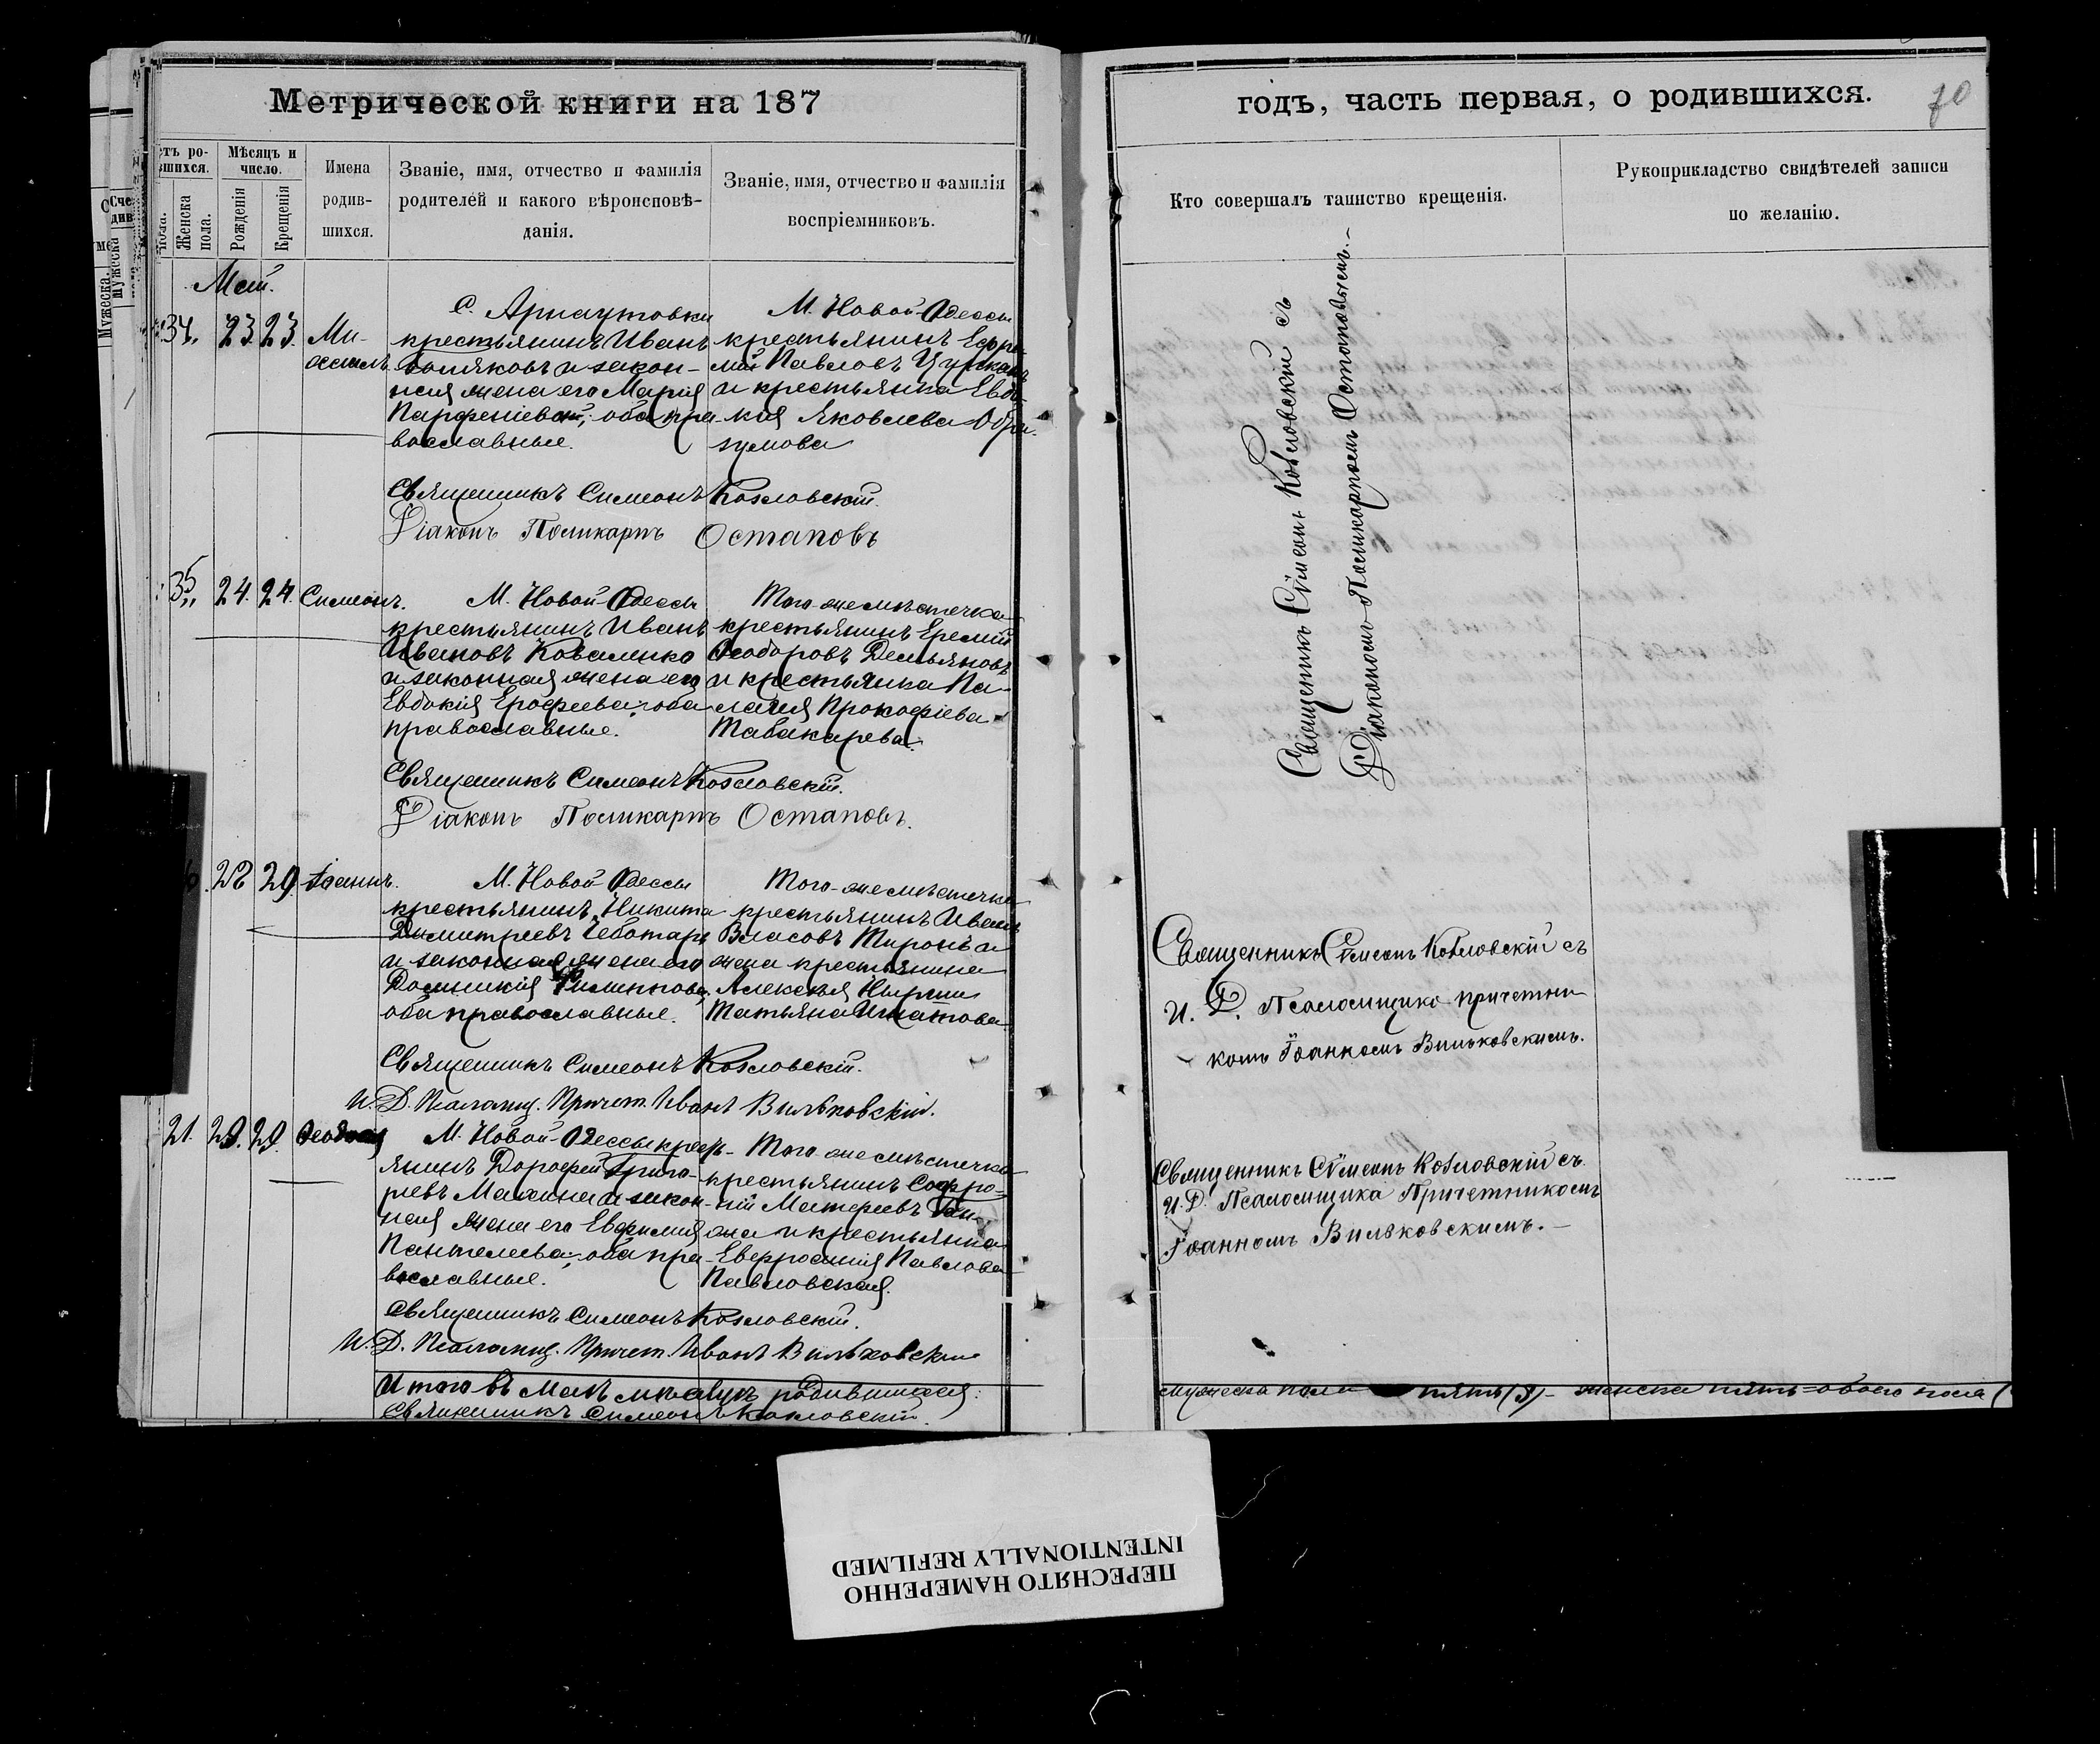 Метрической книги на 187
годъ, часть первая, о родившихся.
70
Мѣсяцъ и число.
Женска пола.
Рожденія
Крещенія
Имена родив-шихся.
Званіе, имя, отчество и фамилія
родителей и какого вѣроисповѣ-
данія.
Званіе, имя, отчество и фамилія
воспріемниковъ.
Кто совершалъ таинство крещенія.
Рукоприкладство свидѣтелей записи
по желанію.
Май.
34. 23. 23. Ми-
хаилъ
С. Арнаутовки
крестьянинъ Иванъ
и закон-
ная жена его Марія
Парфеніева; оба пра-
вославные.
М. Новой-Одессы
крестьянинъ Ефре-
мій Павловъ
и крестьянка Евдо-
кія Яковлева
Священникъ Симеонъ Козловскій.
Діаконъ Поликарпъ Остаповъ
Священникъ Сѵмеонъ Козловскій съ
Діакономъ Поликарпомъ Остаповымъ.-
35. 24. 24. Симеонъ.
М. Новой-Одессы
крестьянинъ Иванъ
Ивановъ Коваленко
и законная жена его
Евдокія Ерофеева; оба
православные.
Того-же мѣстечка
крестьянинъ Еремій
Ѳеодоровъ Демьяновъ
и крестьянка Па-
лагія Прокофіева
Табакарева.
Священникъ Симеонъ Козловскій.
Діаконъ Поликарпъ Остаповъ.
28 29. Іоаннъ.
М. Новой-Одессы
крестьянинъ Никита
Димитреевъ Чеботарь
и законная жена его
Домникія Филиппова,
оба православные.
Того-же мѣстечка
крестьянинъ Иванъ
Власовъ Миронъ и
жена крестьянина
Алексѣя
Татьяна Игнатова
Священникъ Симеонъ Козловскій.
И. Д. Псаломщ. Причет. Иванъ Вильковскій.
Священникъ Сѵмеонъ Козловскій съ
И. Д. Псаломщика причетни-
комъ Іоанномъ Вильковскимъ.
21. 29. 29. Ѳеодосія
М. Новой-Одессы кресть-
янинъ Дорофей Григо-
ревъ и закон-
ная жена его Евфимія
Пантелеева; оба пра-
вославные.
Того-же мѣстечка
крестьянинъ Софро-
ній Матфеевъ
и крестьянка
Евфросинія Павлова
Павловская.
Священникъ Симеонъ Козловскій.
И. Д. Псаломщ. Причет. Иванъ Вильковскій
Священникъ Сѵмеонъ Козловскій съ
И. Д. Псаломщика Причетникомъ
Іоанномъ Вильковскимъ.-
Итого въ Маѣ мѣсяцѣ родившихся:
мужеска пола пять (5) - женска пять - обоего пола (
Священникъ Симеонъ Козловскій.
ПЕРЕСНЯТО НАМЕРЕННО
INTENTIONALLY REFILMED